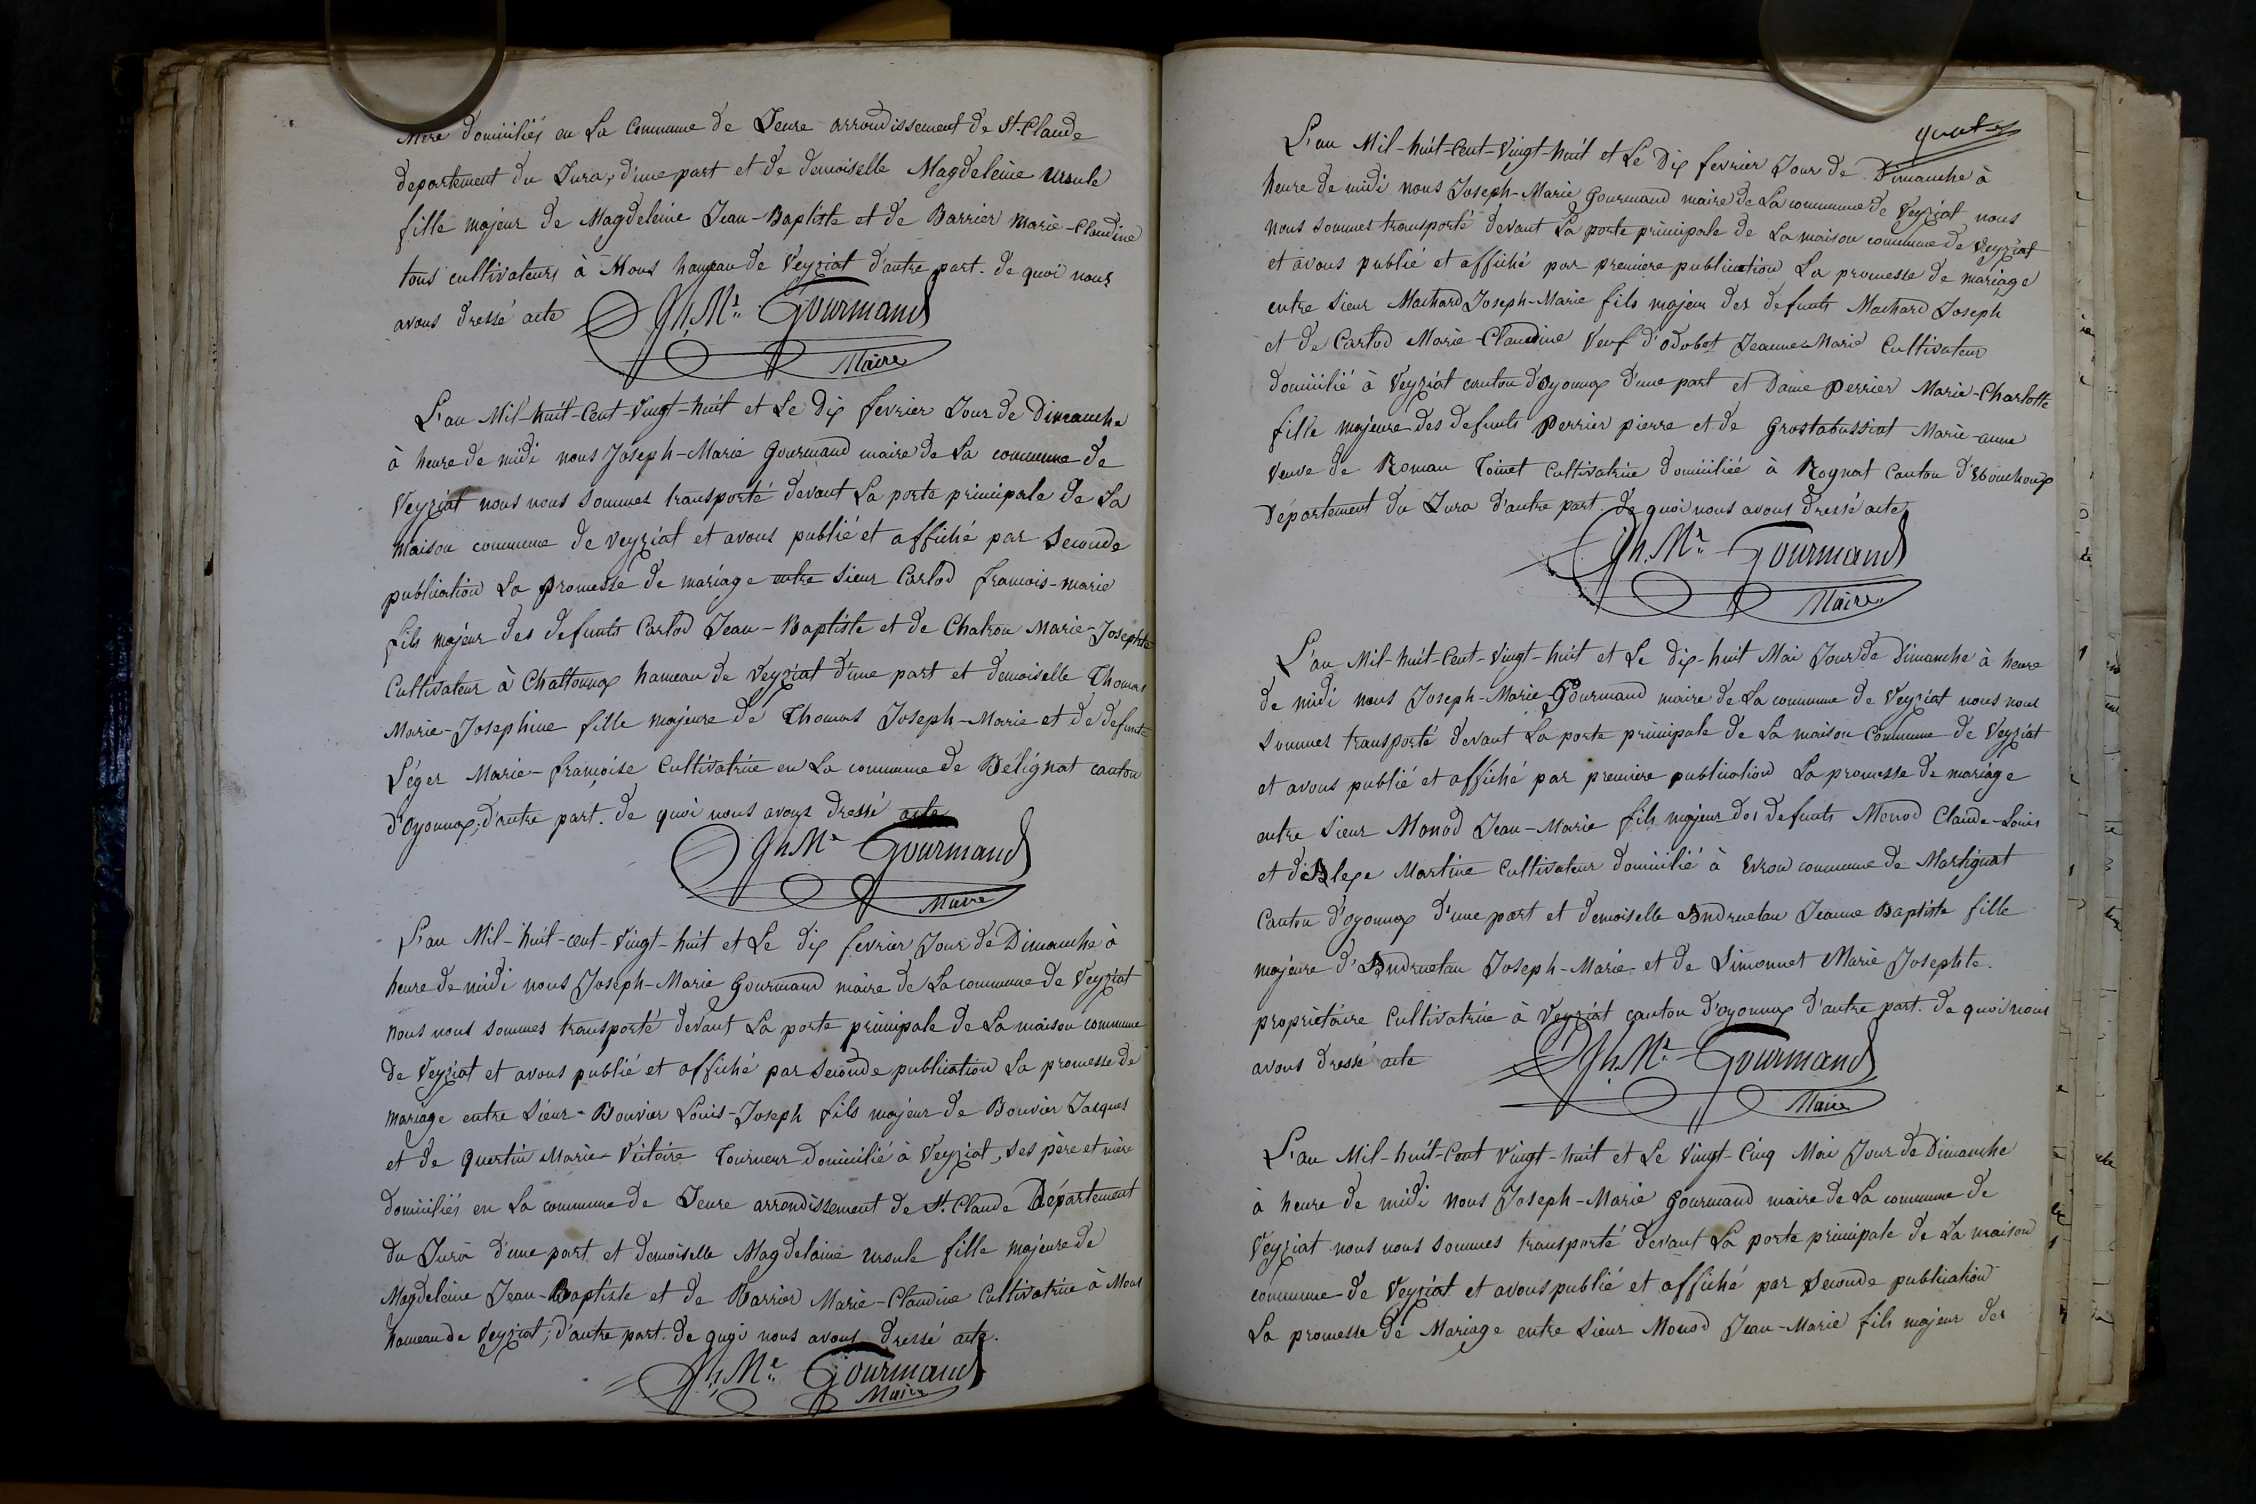 Mère domiciliés en La Commune de Jeure arrondissement de St. Claude
departement du Jura, d'une part et de demoiselle Magdeleine Ursule
fille majeur de Magdeleine Jean-Baptiste et de Barrier Marie-Claudine
tous cultivateurs à Mons hameau de Veyziat d'autre part. de quoi nous
avons dressé acte Jh. Me. Gourmand
Maire
L'an Mil-huit-Cent-Vingt-huit et Le Dix fevrier Jour de Dimanche
à heure de midi nous Joseph-Marie Gourmand maire de La commune de
Veyziat nous nous sommes transporté devant La porte principale de La
Maison commune de Veyziat et avons publié et affiché par Seconde
publication La promesse de mariage entre Sieur Carlod françois-marie
fils majeur des defunts Carlod Jean-Baptiste et de Chatron Marie-Josephte
Cultivateur à Chattonnax hameau de Veyziat d'une part et demoiselle Thomas
Marie-Josephine fille majeure de Thomas Joseph-Marie et de defunte
Léger Marie-françoise Cultivatrice en La commune de Bélignat canton
d'Oyonnax, d'autre part. de quoi nous avons dressé acte
Jh Me Gourmand
Maire
L'an Mil-huit-cent-Vingt-huit et Le dix fevrier Jour de Dimanche à
heure de midi nous Joseph-Marie Gourmand maire de La commune de Veyziat
nous nous sommes transporté devant La porte principale de La maison commune
de Veyziat et avons publié et affiché par seconde publication La promesse de
mariage entre Sieur Bouvier Louis-Joseph fils majeur de Bouvier Jacques
et de Quertin Marie-Victoire Tourneur domicilié à Veyziat, ses père et mère
domiciliés en La commune de Jeure arrondissement de St. Claude Département
du Jura d'une part et demoiselle Magdelaine Ursule fille majeure de
Magdeleine Jean-Baptiste et de Barrier Marie-Claudine Cultivatrice à Mons
hameau de Veyziat, d'autre part. De quoi nous avons dressé acte.
Jh. Me. Gourmand
Maire
L'an Mil-huit-Cent-Vingt-huit et Le Dix fevrier Jour de Dimanche à
heure de midi nous Joseph-Marie Gourmand maire de La commune de Veyziat nous
nous sommes transporté devant La porte principale de La maison commune de Veyziat
et avons publié et affiché par premiere publication La promesse de mariage
entre Sieur Machard Joseph-Marie fils majeur des defunts Machard Joseph
et de Carlod Marie-Claudine Veuf d'Odobet Jeanne-Marie Cultivateur
domicilié à Veyziat canton d'Oyonnax d'une part et Dame Perrier Marie-Charlotte
fille majeure des defunts Perrier pierre et de Grostabussiat Marie-anne
Veuve de Roman Toinet Cultivatrice domiciliée à Rognat Canton d'Bouchoux
Département du Jura d'autre part. De quoi nous avons dressé acte
Jh. Me. Gourmand
Maire
L'an Mil-huit-Cent-Vingt-huit et Le dix-huit Mai Jour de Dimanche à heure
de midi nous Joseph-Marie Gourmand maire de La commune de Veyziat nous nous
sommes transporté devant La porte principale de La maison Commune de Veyziat
et avons publié et affiché par premiere publication La promesse de mariage
entre Sieur Monod Jean-Marie fils majeur des defunts Monod Claude-Louis
et d'Alexe Martine Cultivateur domicilié à Evron commune de Martignat
Canton d'Oyonnax d'une part et demoiselle Andruetan Jeanne Baptiste fille
majeure d'Andruetan Joseph-Marie et de Simonnet Marie Josephte.
proprietaire Cultivatrice à Veyziat canton d'Oyonnax d'autre part. De quoi nous
avons dressé acte Jh. Me. Gourmand
Maire
L'an Mil-huit-Cent Vingt-huit et Le Vingt-Cinq Mai Jour de Dimanche
à heure de midi nous Joseph-Marie Gourmand maire de La commune de
Veyziat nous nous sommes transporté devant La porte principale de La maison
commune de Veyziat et avons publié et affiché par Seconde publication
La promesse de Mariage entre Sieur Monod Jean-Marie fils majeur des